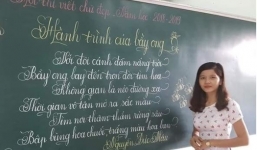 Hội thi viết chữ đẹp Năm học 2018-2019
Hành trình của bầy ong
Với đôi cánh đẫm nắng trời
Bầy ong bay đến trọn đời tìm hoa
Không gian là nẻo đường xa
Thời gian vô tận mở ra sắc màu
Tìm nơi thăm thẳm rừng sâu
Bập bùng hoa chuối trắng màu hoa ban
Nguyễn Đức Mậu